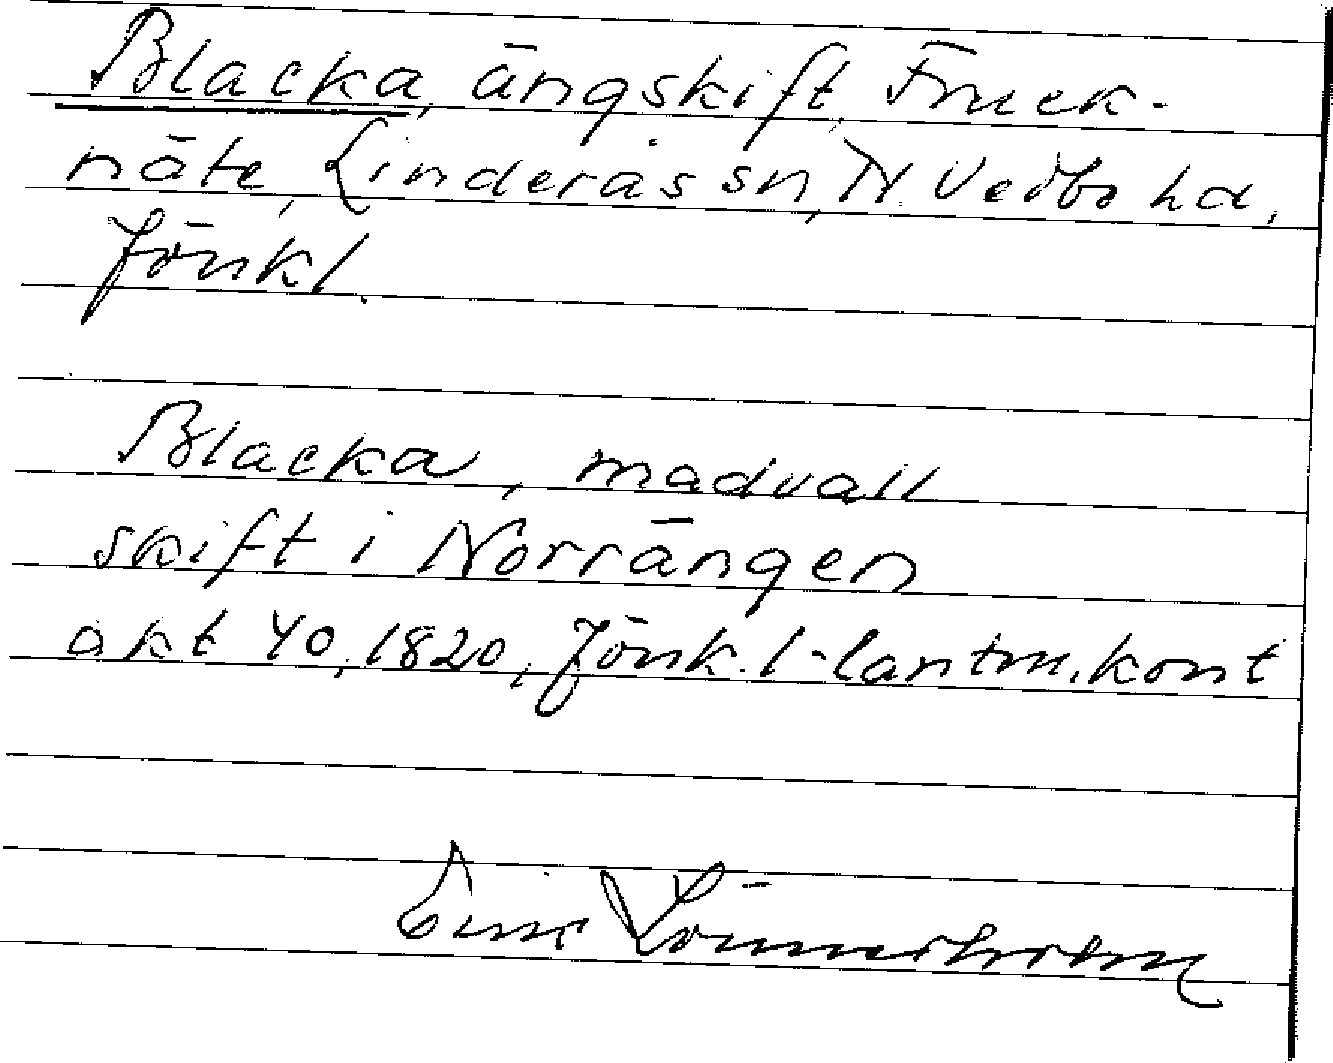 Blacka, ängskift, Fruck-
näte, Linderås sn, N. Vedbo hd,
Jönkl.
Blacka, madvall
skift i Norrängen
akt 40, 1820, Jönk. l-lantm. kont
Lönnerholm